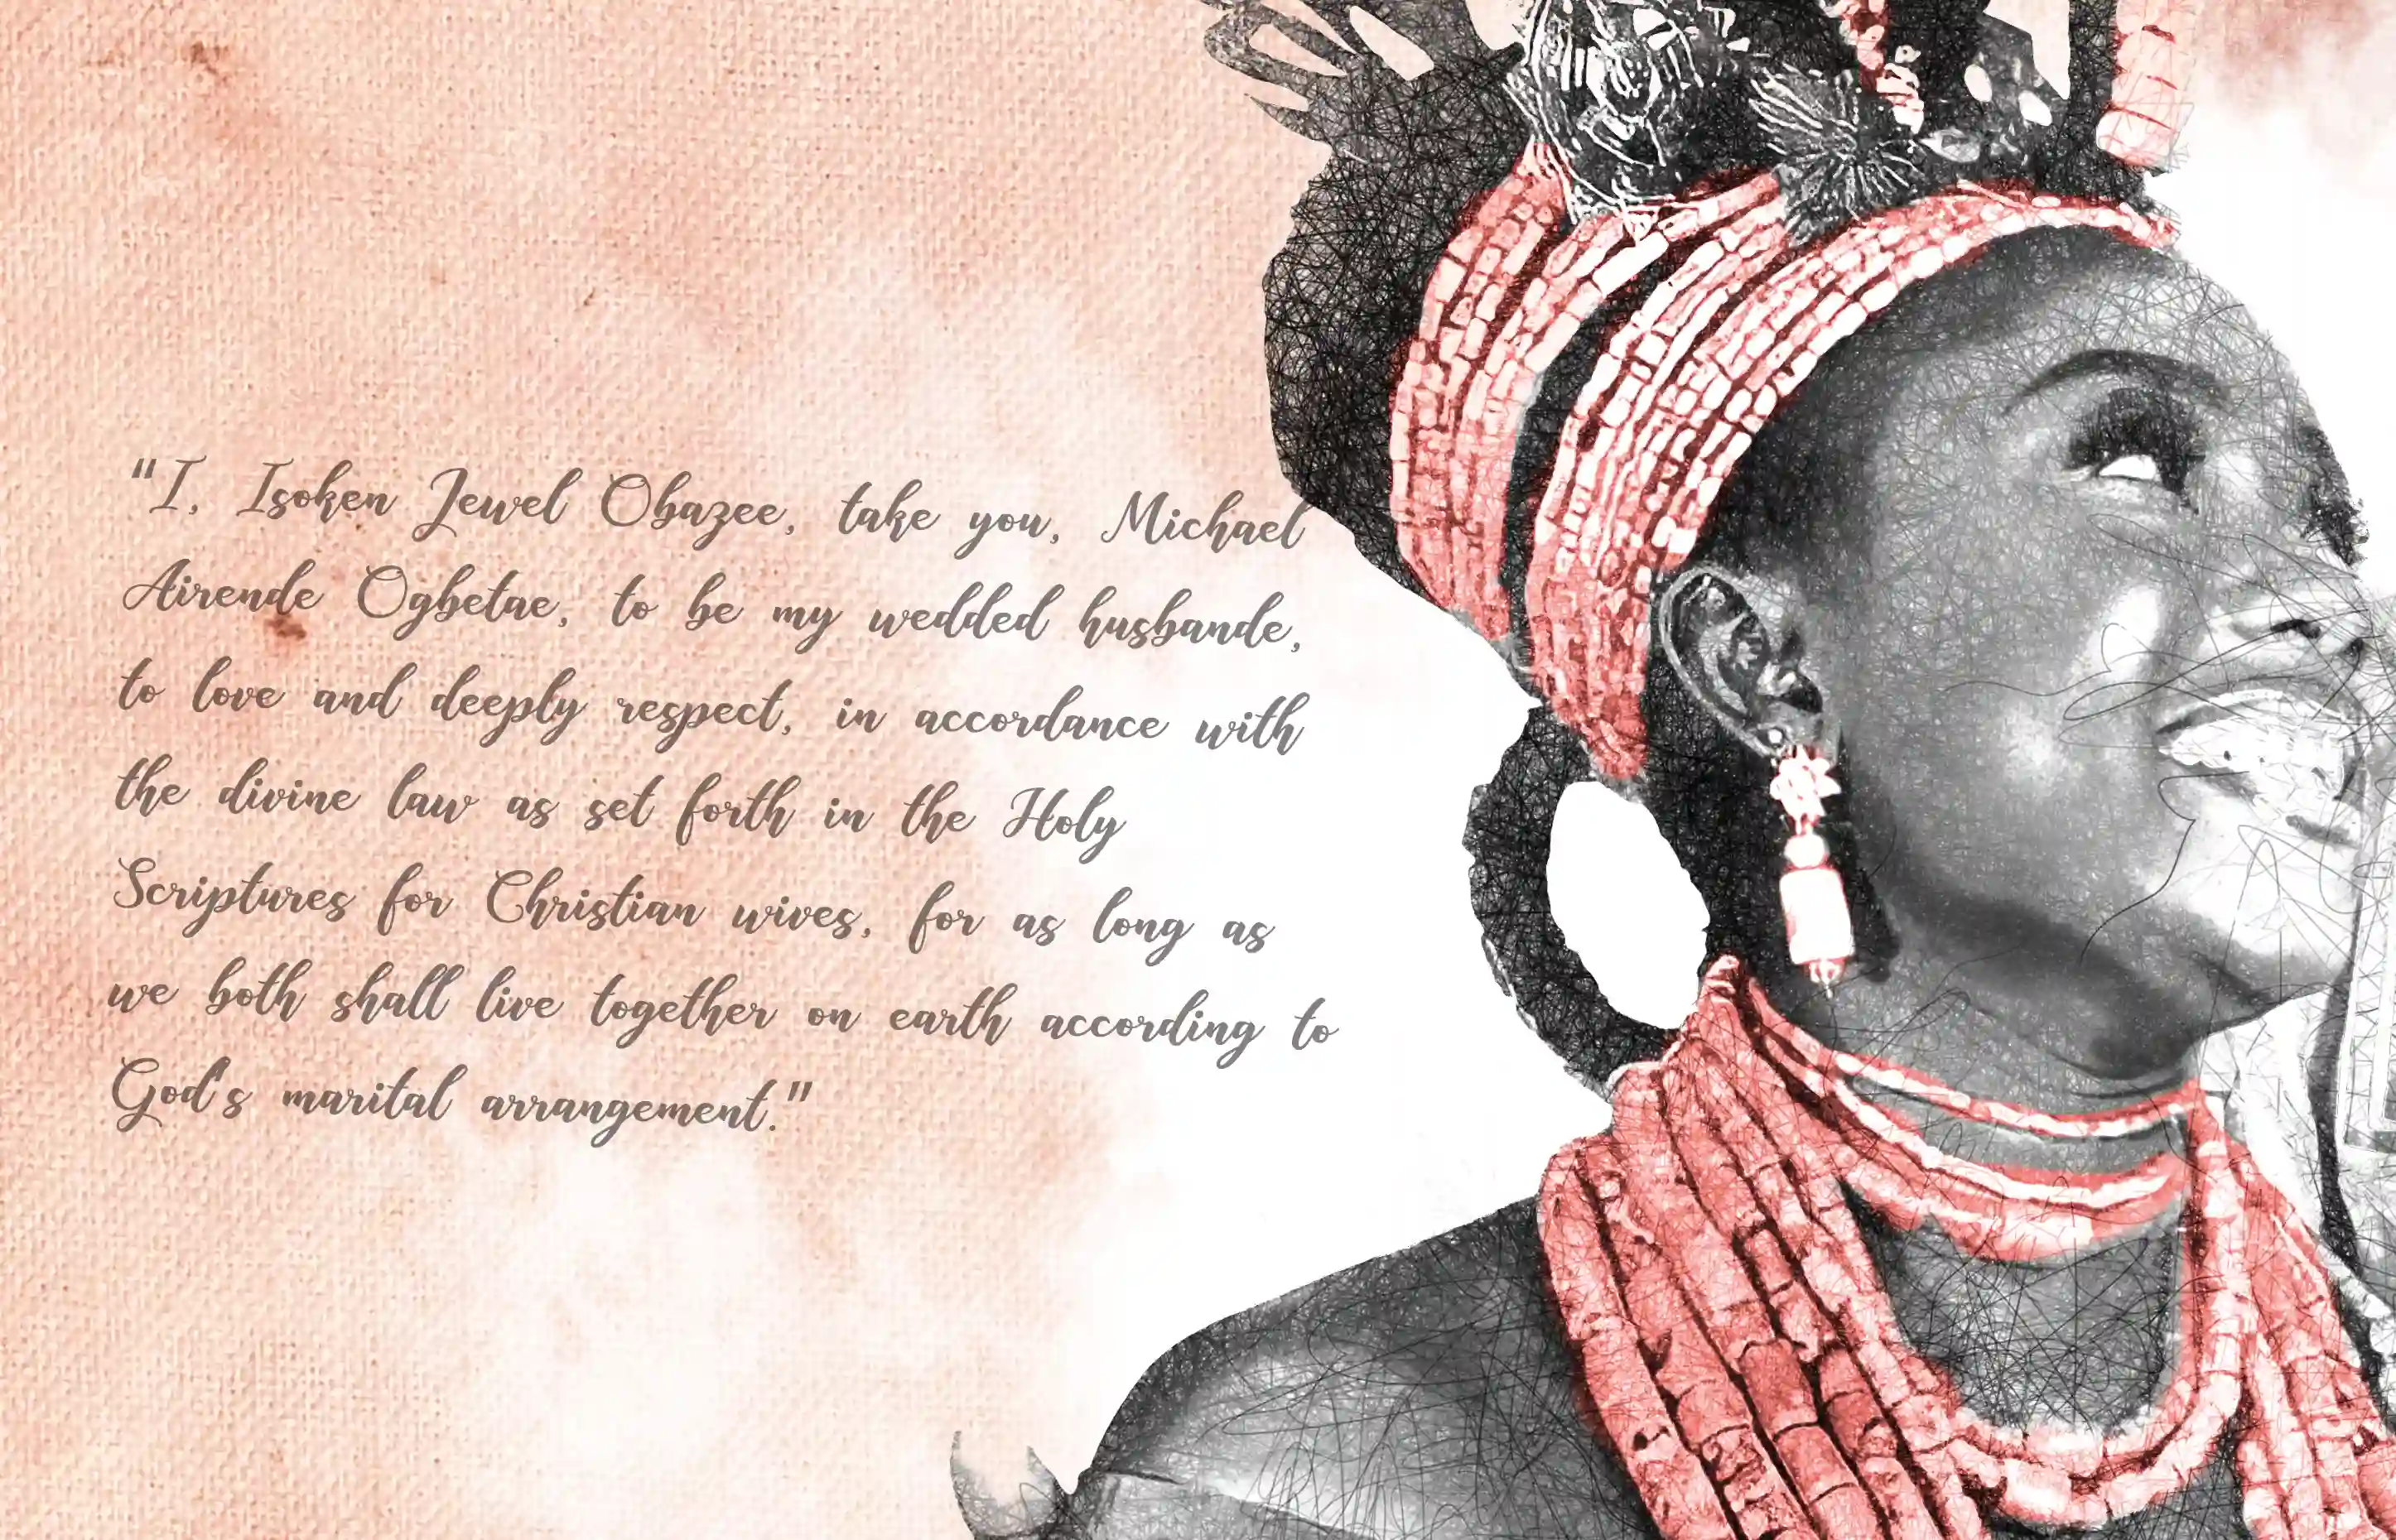 "I, Isoken Jewel Obazee, take you, Michael
Airende Ogbetae, to be my wedded husbande,
to love and deeply respect, in accordance with
the divine law as set forth in the Holy
Scriptures for Christian wives, for as long as
we both shall live together on earth according to
God's marital arrangement."